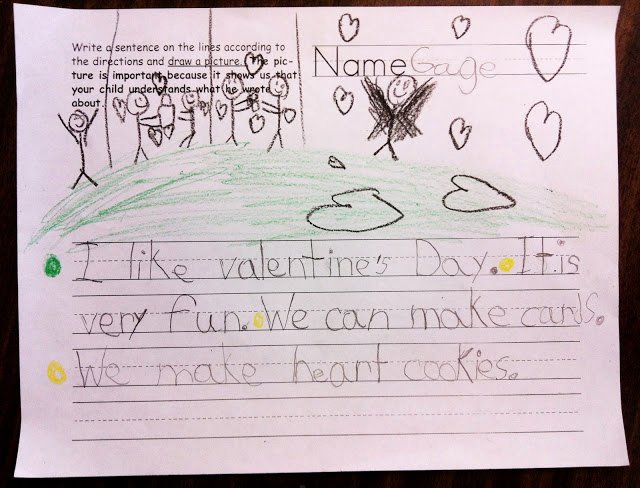 Write a sentence on the lines according to
the directions and draw a picture. The pic-
ture is important because it shows us that
your child understands what he wrote
about.
Name Gage
I like valentine's Day. It is
very fun. We can make cards.
We make heart cookies.